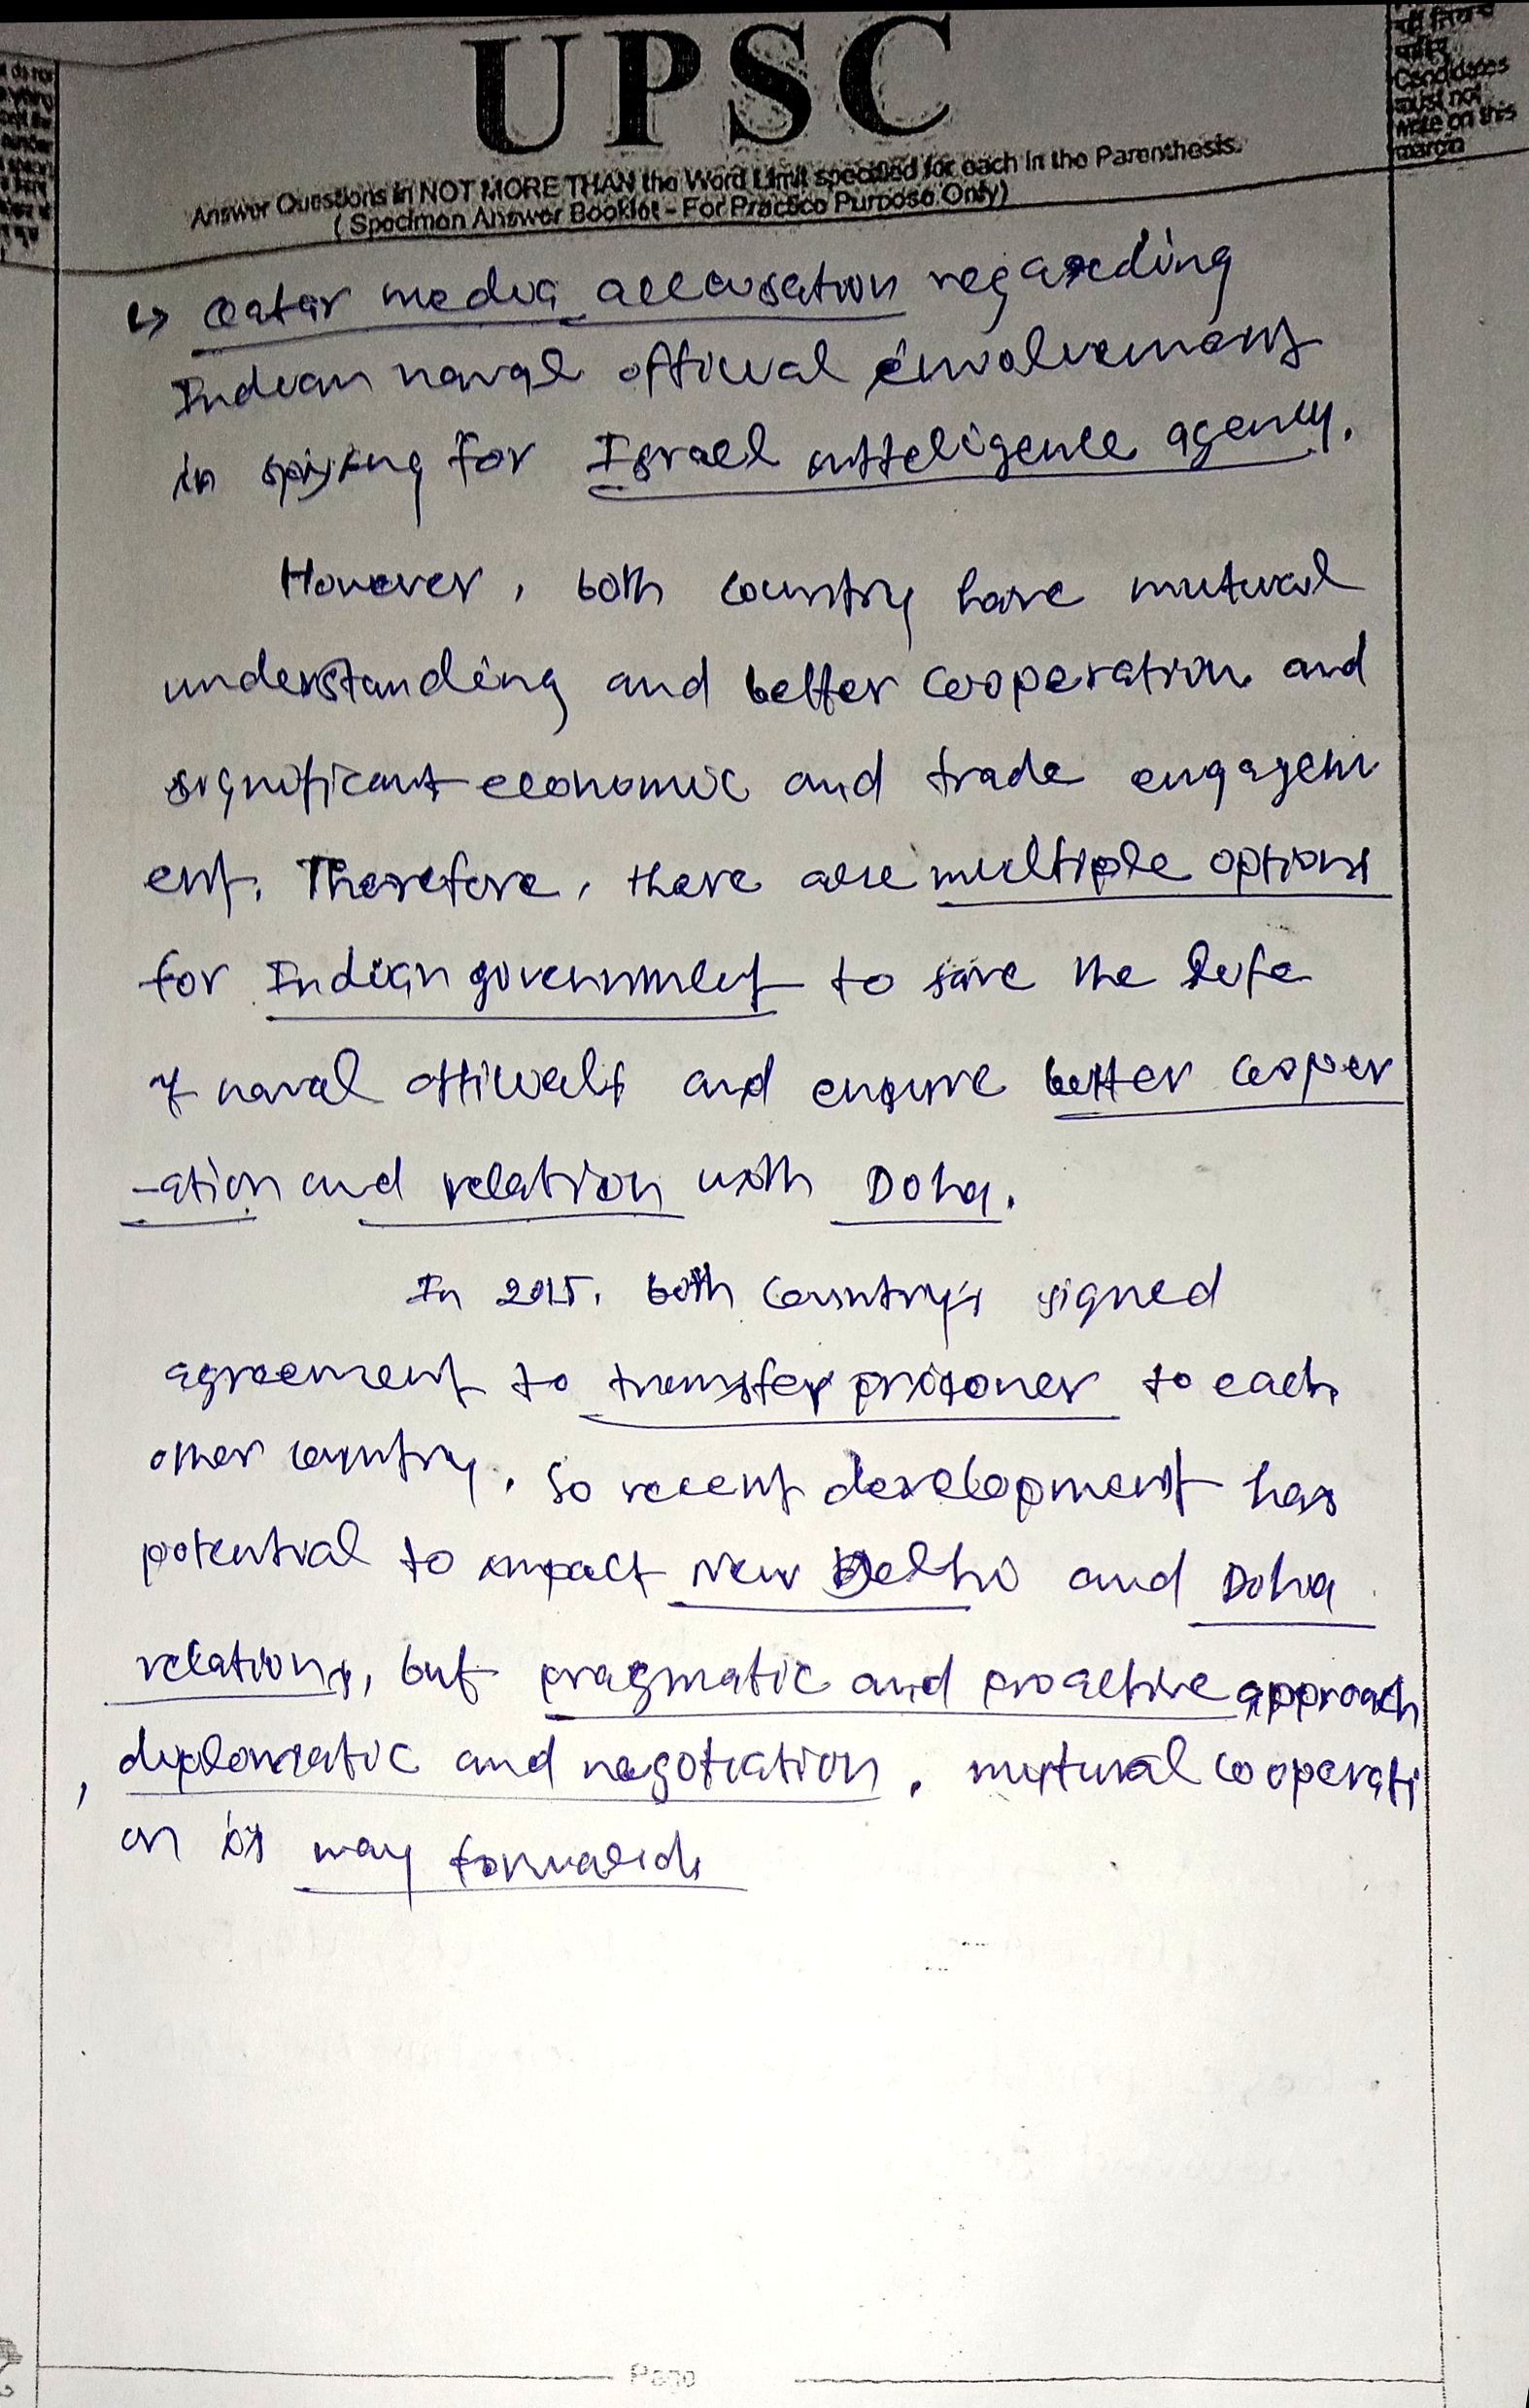 UPSC
Answer Questions in NOT MORE THAN the Word Limit specified for each in the Parenthesis.
( Specimen Answer Booklet - For Practice Purpose Only)
Candidates
must not
write on this
margin
↳ Qatar media accusation regarding
Indian naval official involvement
in spying for Israel intteligence agency.
However, both country have mutual
understanding and better cooperation and
significant economic and trade engagem
ent. Therefore, there are multiple options
for Indian government to save the life
of naval officials and ensure better cooper
-ation and relation with Doha.
In 2015, both country's signed
agreement to transfer prisoner to each
other country. So recent development has
potential to impact New Delhi and Doha
relations, but pragmatic and proactive approach
, diplomatic and negotiation, mutual cooperati
on is way forward
Page